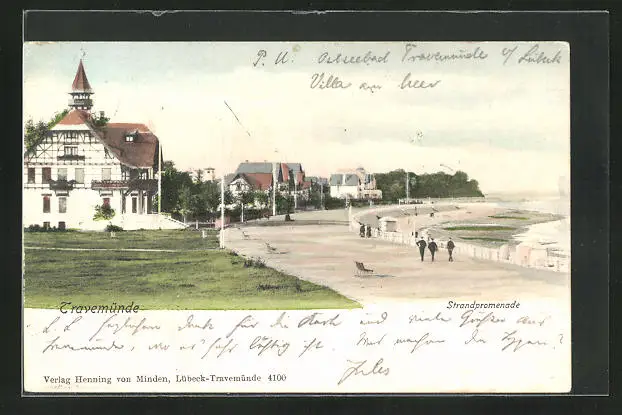 P. U. Ostseebad Travemünde b/ Lübeck
Villa am Meer
Travemünde
Strandpromenade
L. L. Herzlichen Dank für die Karte und viele Grüße aus
Travemünde, wo es sehr lustig ist. Was machen die
Jules
Verlag Henning von Minden, Lübeck-Travemünde 4100